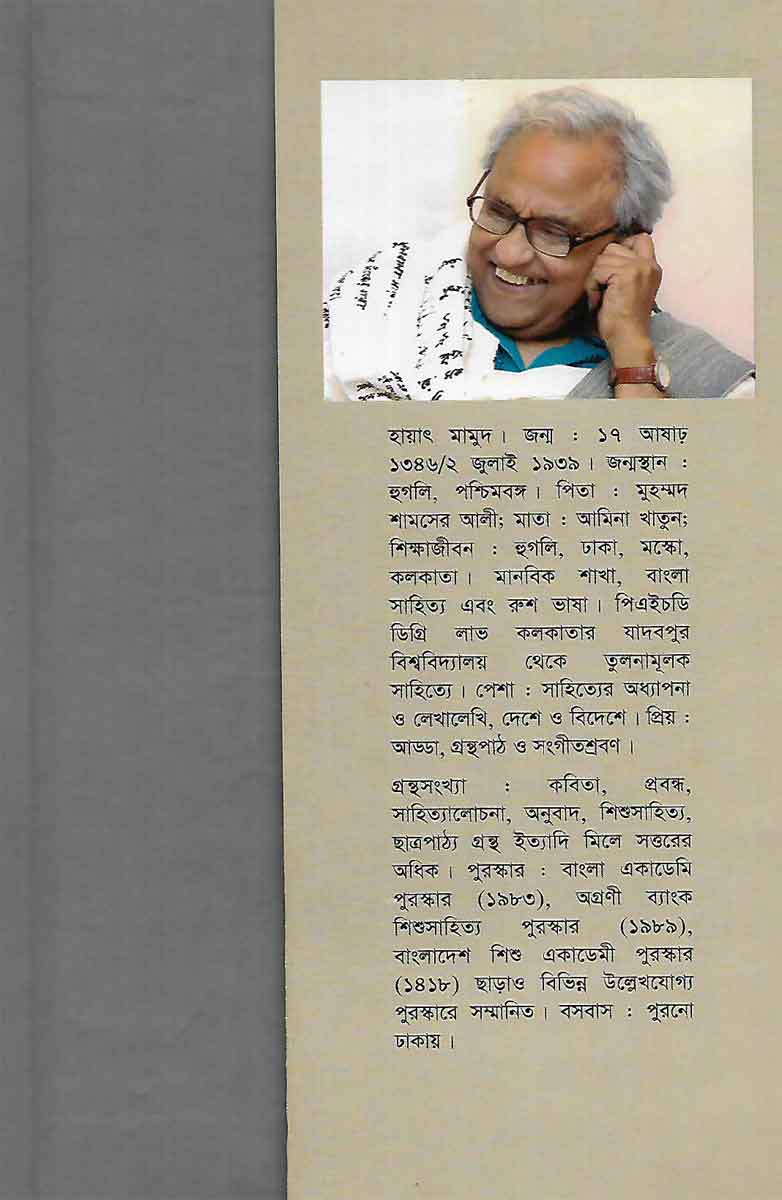 হায়াৎ মামুদ। জন্ম : ১৭ আষাঢ়
১৩৪৬/২ জুলাই ১৯৩৯। জন্মস্থান :
হুগলি, পশ্চিমবঙ্গ। পিতা : মুহম্মদ
শামসের আলী; মাতা : আমিনা খাতুন;
শিক্ষাজীবন : হুগলি, ঢাকা, মস্কো,
কলকাতা। মানবিক শাখা, বাংলা
সাহিত্য এবং রুশ ভাষা। পিএইচডি
ডিগ্রি লাভ কলকাতার যাদবপুর
বিশ্ববিদ্যালয় থেকে তুলনামূলক
সাহিত্যে। পেশা : সাহিত্যের অধ্যাপনা
ও লেখালেখি, দেশে ও বিদেশে। প্রিয় :
আড্ডা, গ্রন্থপাঠ ও সংগীতশ্রবণ।
গ্রন্থসংখ্যা : কবিতা, প্রবন্ধ,
সাহিত্যালোচনা, অনুবাদ, শিশুসাহিত্য,
ছাত্রপাঠ্য গ্রন্থ ইত্যাদি মিলে সত্তরের
অধিক। পুরস্কার : বাংলা একাডেমি
পুরস্কার (১৯৮৩), অগ্রণী ব্যাংক
শিশুসাহিত্য পুরস্কার (১৯৮৯),
বাংলাদেশ শিশু একাডেমী পুরস্কার
(১৪১৮) ছাড়াও বিভিন্ন উল্লেখযোগ্য
পুরস্কারে সম্মানিত। বসবাস : পুরনো
ঢাকায়।